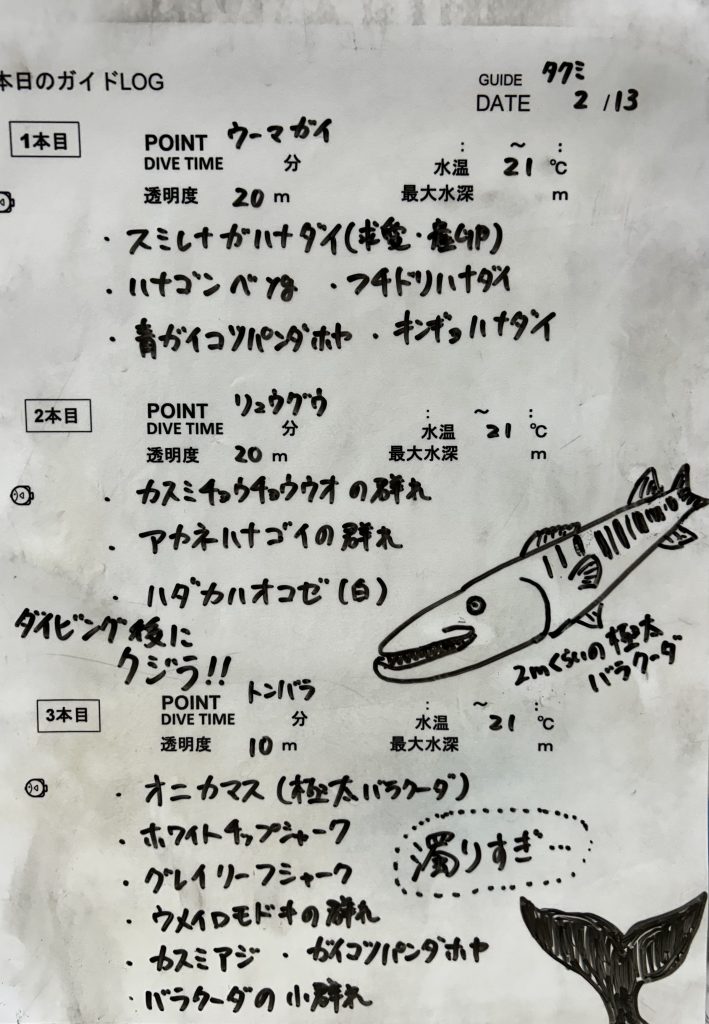 本日のガイドLOG
GUIDE タクミ
DATE 2 / 13
1本目
POINT ウーマガイ
DIVE TIME 分 : ~ :
水温 21 ℃
透明度 20 m 最大水深 m
・スミレナガハナダイ(求愛・産卵)
・ハナゴンベ yg ・フチドリハナダイ
・青ガイコツパンダホヤ ・キンギョハナダイ
2本目
POINT リュウグウ
DIVE TIME 分 : ~ :
水温 21 ℃
透明度 20 m 最大水深 m
・カスミチョウチョウウオの群れ
・アカネハナゴイの群れ
・ハダカハオコゼ(白)
ダイビング後に
クジラ!!
2mくらいの極太
バラクーダ
3本目
POINT トンバラ
DIVE TIME 分 : ~ :
水温 21 ℃
透明度 10 m 最大水深 m
・オニカマス(極太バラクーダ)
・ホワイトチップシャーク
濁りすぎ…
・グレイリーフシャーク
・ウメイロモドキの群れ
・カスミアジ ・ガイコツパンダホヤ
・バラクーダの小群れ